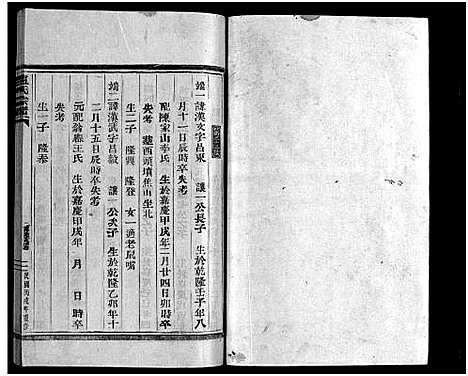 端一 諱漢文字呂東 讓一公長子 生於乾隆壬子年八
月十二日辰時卒失考
配陳家山李氏 生於嘉慶甲戌年二月廿四日卯時卒
失考 葬西頭墳蕉山坐北
生二子 隆興 隆登 女一適老鼠嘴
端二 諱漢武字呂敏 讓一公次子 生於乾隆乙卯年十
二月十五日辰時失考
元配翁泰王氏 生於嘉慶甲戌年 月 日時卒
失考
生一子 隆泰